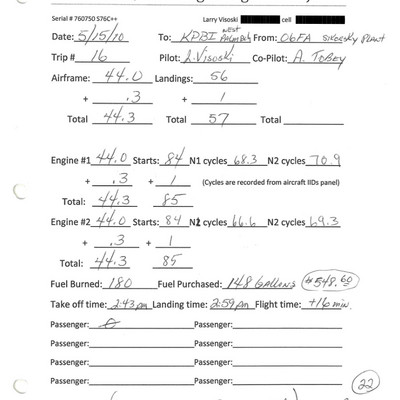 Serial # 760750 S76C++ Larry Visoski cell
Date: 5/15/10 To: KPBI WEST PALM Bch From: 06FA SIKORSKY PLANT
Trip # 16 Pilot: L. Visoski Co-Pilot: A. TOBEY
Airframe: 44.0 Landings: 56
+ .3 + 1
Total 44.3 Total 57 Total
Engine #1 44.0 Starts: 84 N1 cycles 68.3 N2 cycles 70.9
+ .3 + 1 (Cycles are recorded from aircraft IIDs panel)
Total: 44.3 85
Engine #2 44.0 Starts: 84 N1 cycles 66.6 N2 cycles 69.3
+ .3 + 1
Total: 44.3 85
Fuel Burned: 180 Fuel Purchased: 148 Gallons $548.60
Take off time: 2:43 pm Landing time: 2:59 pm Flight time: +16 min.
Passenger: 0 Passenger:
Passenger: Passenger:
Passenger: Passenger:
Passenger: Passenger: 22